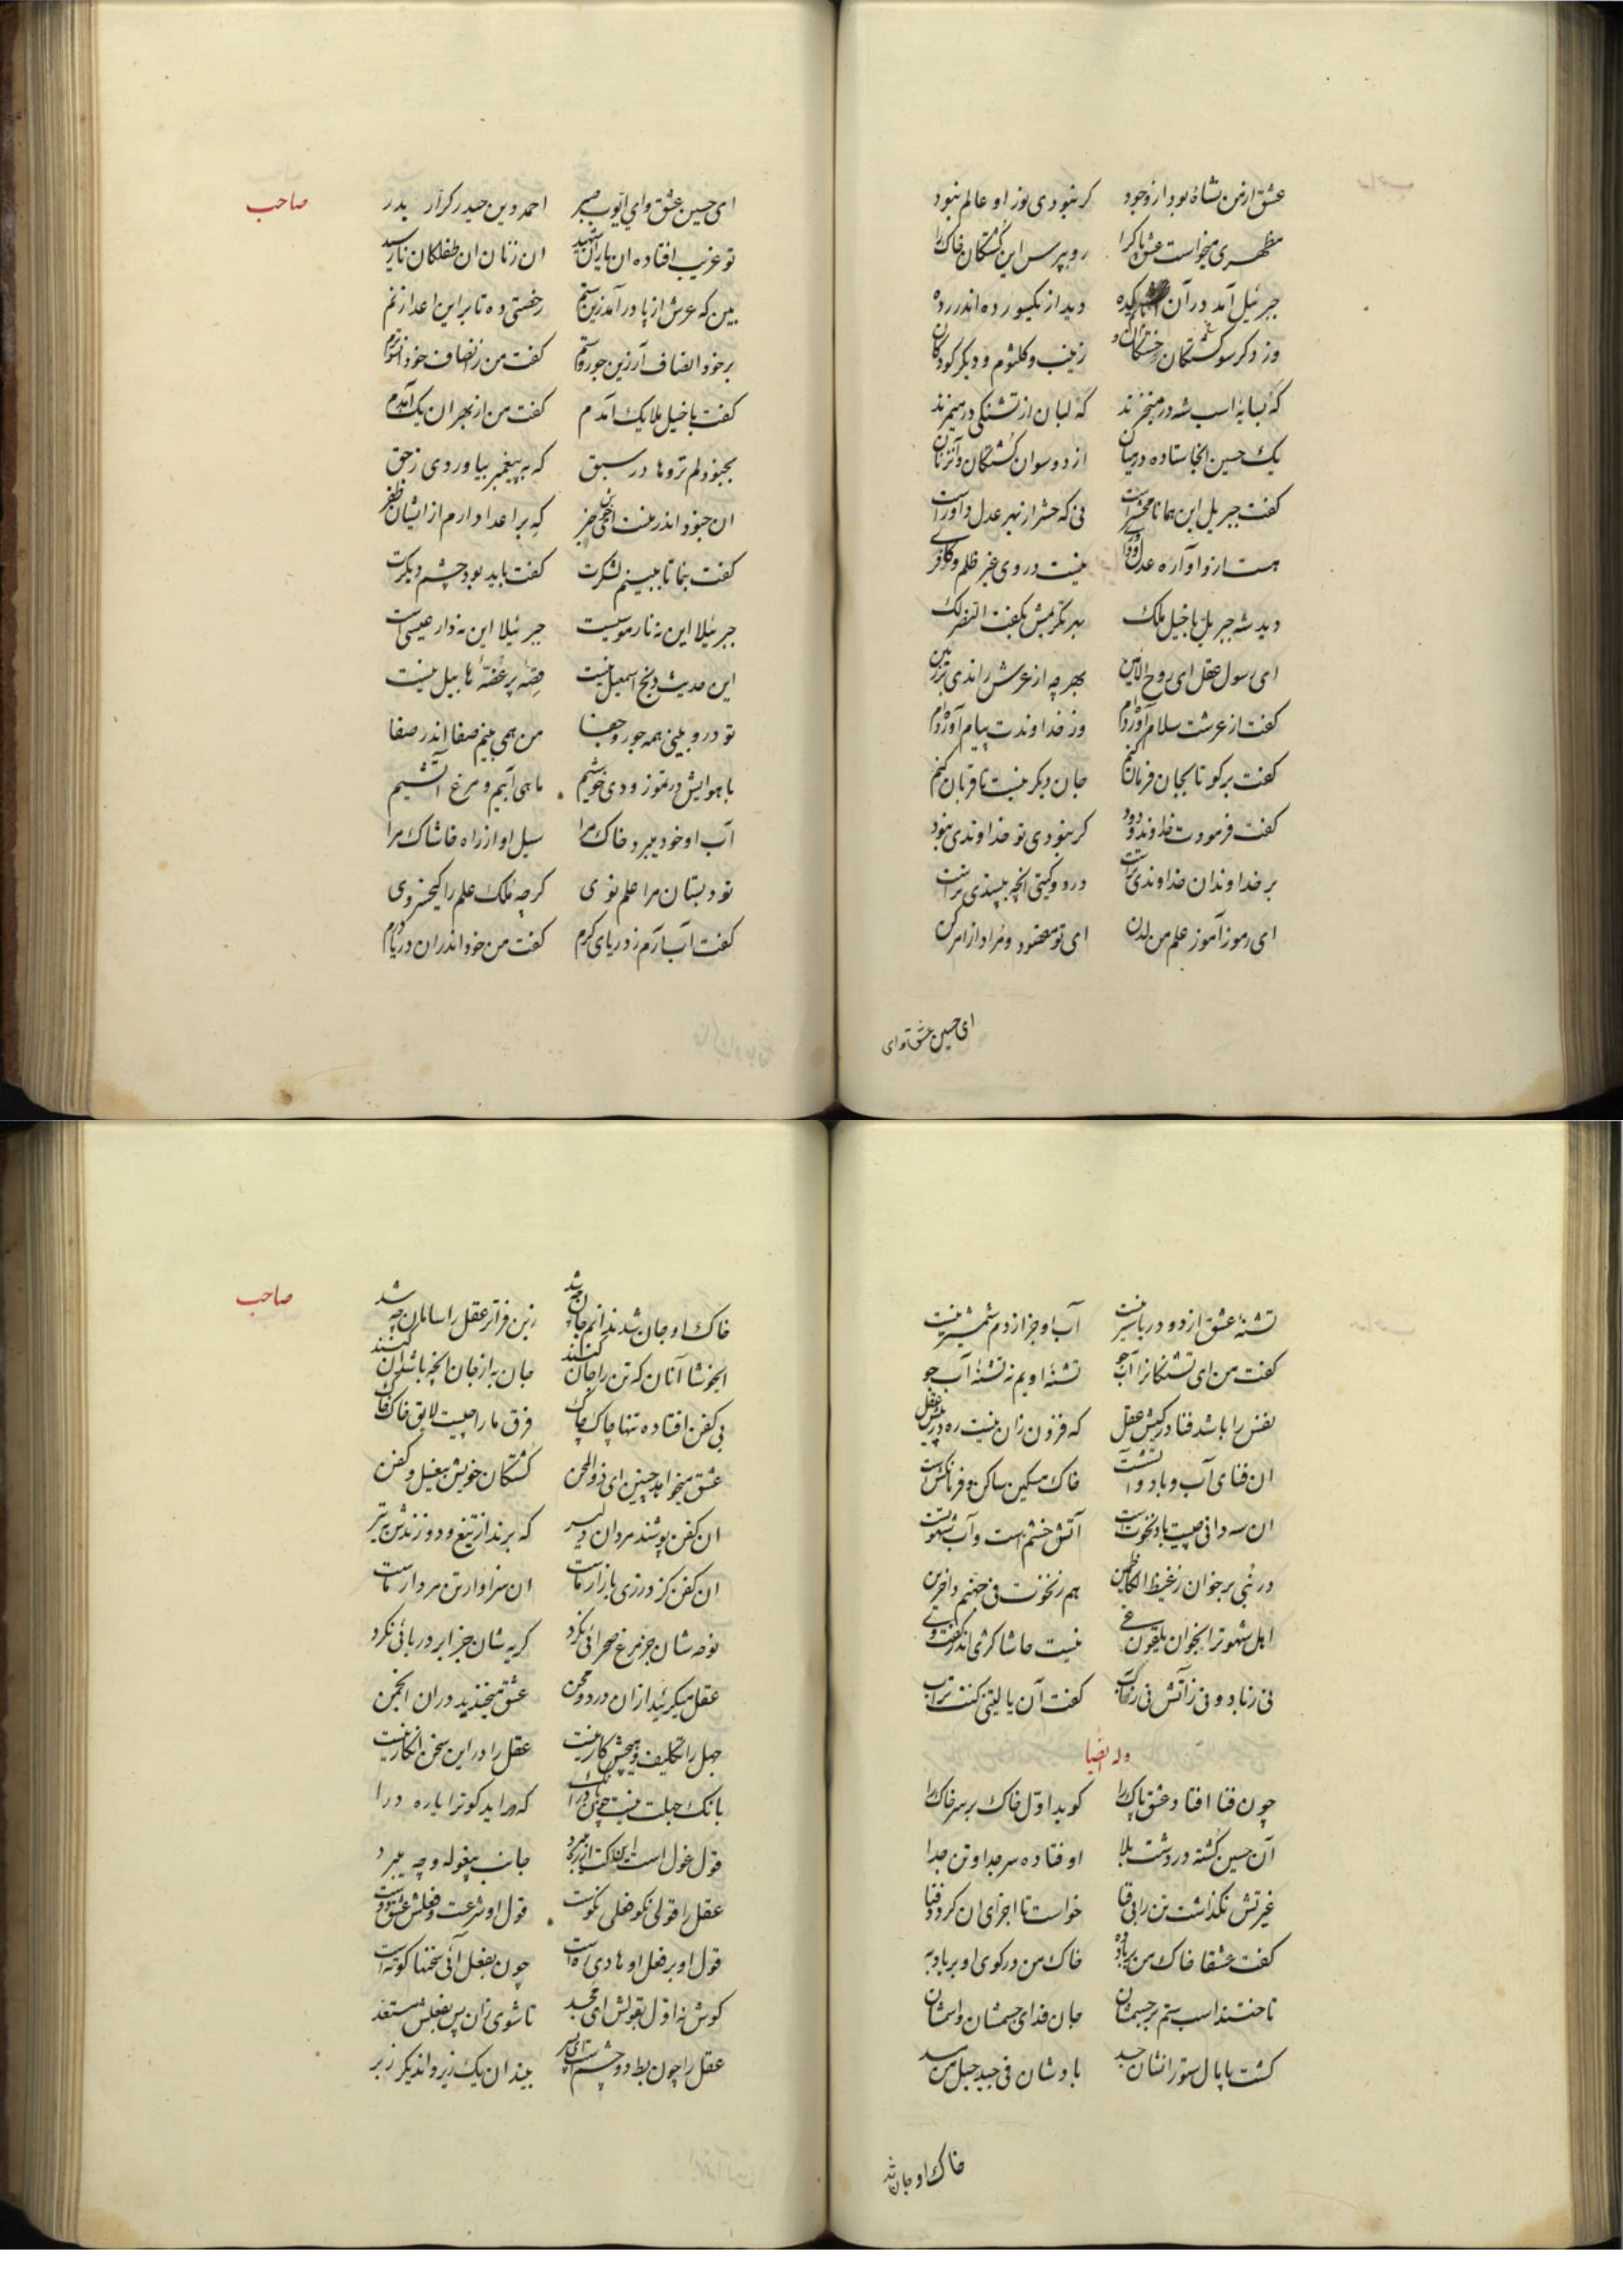 عشق ازمن شاه بود از وجود کرنبودی نور او عالم نبود
مظهری میخواست عشق پاکرا رو بپرس این کشتکان خاکرا
جبرئیل آمد درآن کده دید از یکسو رده اندر رده
وز دکر سو کشتکان خستکان و زینب وکلثوم و دیکر کودکان
که بسایهٔ اسب شه در میخزند که لبان از تشنکی در میمزند
یک حسین انجا ستاده درمیان از دوسوان کشتکان وآنزنان
کفت جبریل این همانا محشر است نی که حشر از بهر عدل داور است
هست ازو آواره عدل و داوری نیست دروی غیر ظلم وکافری
دید شه جبریل با خیل ملک بهر تکریمش بکفت النصر لک
ای رسول عقل ای روح الامین بهرچه ازعرش راندی بر زمین
کفت ازعرشت سلام آورده‌ام وز خداوندت پیام آورده‌ام
کفت برکو تا بجان فرمان کنم جان دیکر نیست تا قربان کنم
کفت فرمودت خداوند ودود کرنبودی تو خداوندی نبود
بر خداوندان خداوندی تراست در دو کیتی انچه بپسندی تراست
ای رموز آموز علم من لدن ای تو مقصود و مراد از امر کن
ای حسین عشق و ای
صاحب
ای حسین عشق وای ایوب صبر احمد دین حیدر کرار بدر
تو غریب افتاده ان یاران شهید ان زنان ان طفلکان نارسید
بین که عرش از پا درآمد زین ستم رخصتی ده تا براین اعدا زنم
برخود انصاف آر زین جور وستم کفت من زانصاف خود
کفت با خیل ملایک آمدم کفت من از بهر ان یک آمدم
بجنود لم تروها در سبق که به پیغمبر بیاوردی زحق
ان جنود اندر منت ای خبر که براعدا دارم ازایشان ظفر
کفت بنما تا ببینم لشکرت کفت باید بود چشم دیکرت
جبرئیلا این نه نار موسیست جبرئیلا این نه دار عیسی است
این حدیث ذبح اسمعیل نیست قصهٔ پر غصهٔ هابیل نیست
تو درو بینی همه جور وجفا من همی بینم صفا اندر صفا
با هوایش در تموز ودی خوشیم ماهی آبیم و مرغ آتشیم
آب او خود میبرد خاک مرا سیل او از راه خاشاک مرا
تو دبستان مرا علم نوی کرچه ملک علم را کیخسروی
کفت آب آرم ز دریای کرم کفت من خود اندران دریا درم
تشنهٔ عشق ازدو دریا سیر نیست آب او جز از دم شمشیر نیست
کفت من ای تشنکانرا آب جو تشنهٔ اویم نه تشنهٔ آب جو
نفس را باشد فنا درکیش عقل که فزون زان نیست ره در پیش عقل
ان فنای آب و باد و آتشست خاک مسکین ساکن و فرمانکش است
ان سه دانی چیست باد نخوت است آتش خشم است و آب شهوتست
در نبی برخوان زغیظ الکاظمین هم زنخوت فی جهنم داخرین
اهل شهوترا بخوان یلقون غی نیست حاشا کژی اندر کفت وی
نی زناباد و نی زآتش نی زآب کفت آن یا لیتنی کنت تراب
وله ایضا
چون فنا افتاد عشق پاک را کوید اول خاک برسر خاکرا
آن حسین کشته در دشت بلا اوفتاده سر جدا و تن جدا
غیرتش نکذاشت تن را بی قبا خواست تا اجزای ان کردد فنا
کفت عشقا خاک من برباد ده خاک من درکوی او برباد به
تاختند اسب ستم برجسمشان جان فدای جسمشان واسمشان
کشت پامال ستورانشان جسد بادشان فی جید حبل من مسد
خاک او جان شد
صاحب
خاک او جان شد ندانم جان چه شد زین فراتر عقل را سامان چه شد
ایخوشا آنان که تن را جان کنند جان به ازجان انچه باشد ان کنند
بی کفن افتاده تنها چاک چاک فرق ما را چیست لایق خاک خاک
عشق میخواهد چنین ای ذوالمحن کشتکان خویش بیغسل و کفن
ان کفن پوشند مردان دلیر که برند از تیغ و دوزندش به تیر
ان کفن کز درزی بازار ماست ان سزاوار تن مردار ماست
نوحه شان جز مرغ صحرائی نکرد کریه شان جز ابر دریائی نکرد
عقل میکرئید ازان درد ومحن عشق میخندید دران انجمن
جهل را تکلیف وهیچش کار نیست عقل را در این سخن انکار نیست
بانک جهلت نیست چون بانک درا که دراید کو ترا باره درا
قول غول است جانب بیغوله و چه میبرد
عقل را قولی نکو فعلی نکوست قول او شرعت و فعلش عشق دوست
قول او بر فعل او هادی ره است چون بفعل آئی سخنها کوته است
کوش نه اول بقولش ای مجد تا شوی زان پس بفعلش مستعد
عقل را چون بط دو چشم است ای پسر بیند ان یک زیر و اندیکر زبر